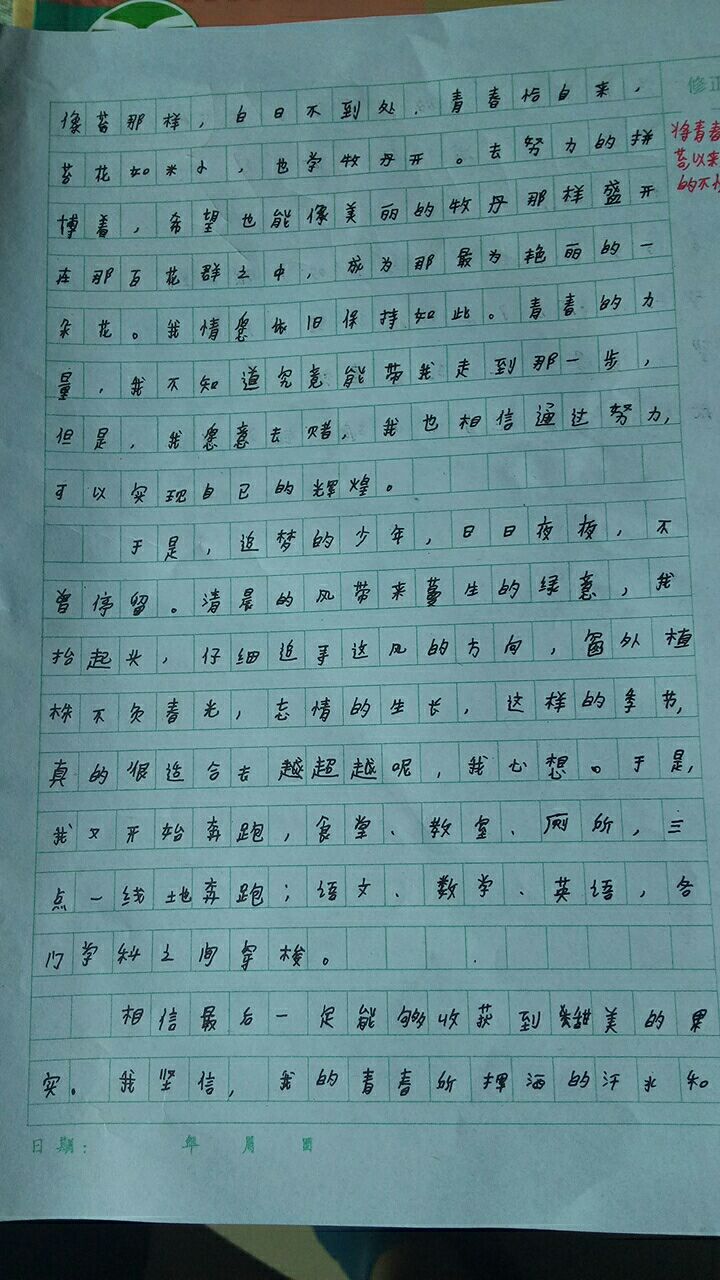 像苔那样，白日不到处，青春恰自来，
苔花如米小，也学牧丹开。去努力的拼
博着，希望也能像美丽的牧丹那样盛开
在那百花群之中，成为那最为艳丽的一
朵花。我情愿依旧保持如此。青春的力
量，我不知道究竟能带我走到那一步，
但是，我愿意去赌，我也相信通过努力，
可以实现自己的辉煌。
于是，追梦的少年，日日夜夜，不
曾停留。清晨的风带来蔓生的绿意，我
抬起头，仔细追寻这风的方向，窗外植
株不负春光，忘情的生长，这样的季节，
真的很适合去超越呢，我心想。于是，
我又开始奔跑，食堂、教室、厕所，三
点一线地奔跑；语文、数学、英语，各
门学科之间穿梭。
相信最后一定能够收获到甜美的果
实。我坚信，我的青春所挥洒的汗水和
日期： 年 月 日
修正
将青春
苔，以来
的不